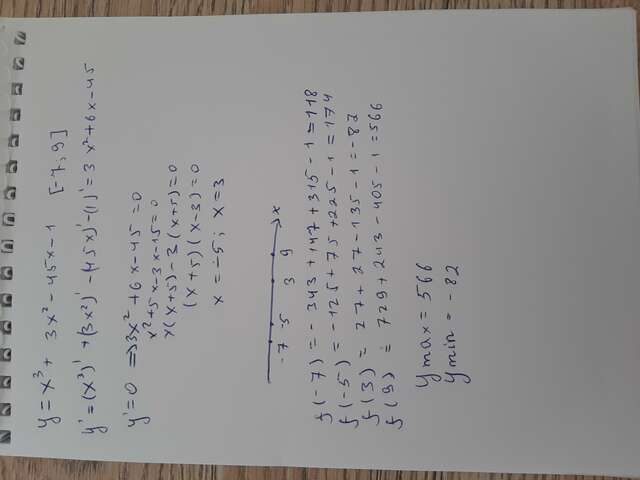 y=x³+ 3x²-45x-1 [-7;9]
y'=(x³)'+(3x²)'-(45x)'-(1)'=3x²+6x-45
y'=0 ⇒3x²+6x-45=0
x²+5x-3x-15=0
x(x+5)-3(x+5)=0
(x+5)(x-3)=0
x=-5; x=3
-7 -5 3 9 x
f(-7)=-343+147+315-1=118
f(-5)=-125+75+225-1=174
f(3)=27+27-135-1=-82
f(9)=729+243-405-1=566
ymax=566
ymin=-82